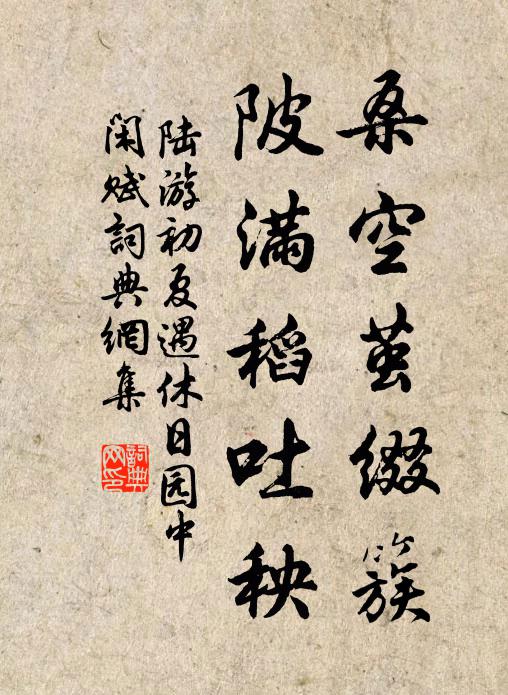 桑空茧缀簇
陂满稻吐秧
陆游初夏遇休日园中
闲赋詞典網集
詞典网印